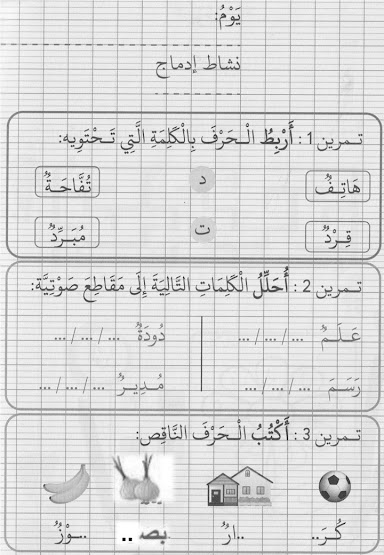 يَوْمُ:
نشاط إدماج
تـمرين 1 : أَرْبِطُ الْـحَرْفَ بِالْكَلِمَةِ الَّتِي تَـحْتَوِيه:
هَاتِـفٌ د تُفَّاحَـةٌ
قِـرْدٌ ت مُبَـرِّدٌ
تـمرين 2 : أُحَلِّلُ الْكَلِمَاتِ التَّالِيَةَ إِلَى مَقَاطِعَ صَوْتِيَّة:
عَـلَـمٌ ... /... /... دُودَةٌ ... /... /...
رَسَـمَ ... /... /... مُدِيـرٌ ... /... /...
تـمرين 3 : أَكْتُبُ الْـحَرْفَ النَّاقِص:
كُـرَ.. ..ارٌ بصـ .. ..ـوْزٌ